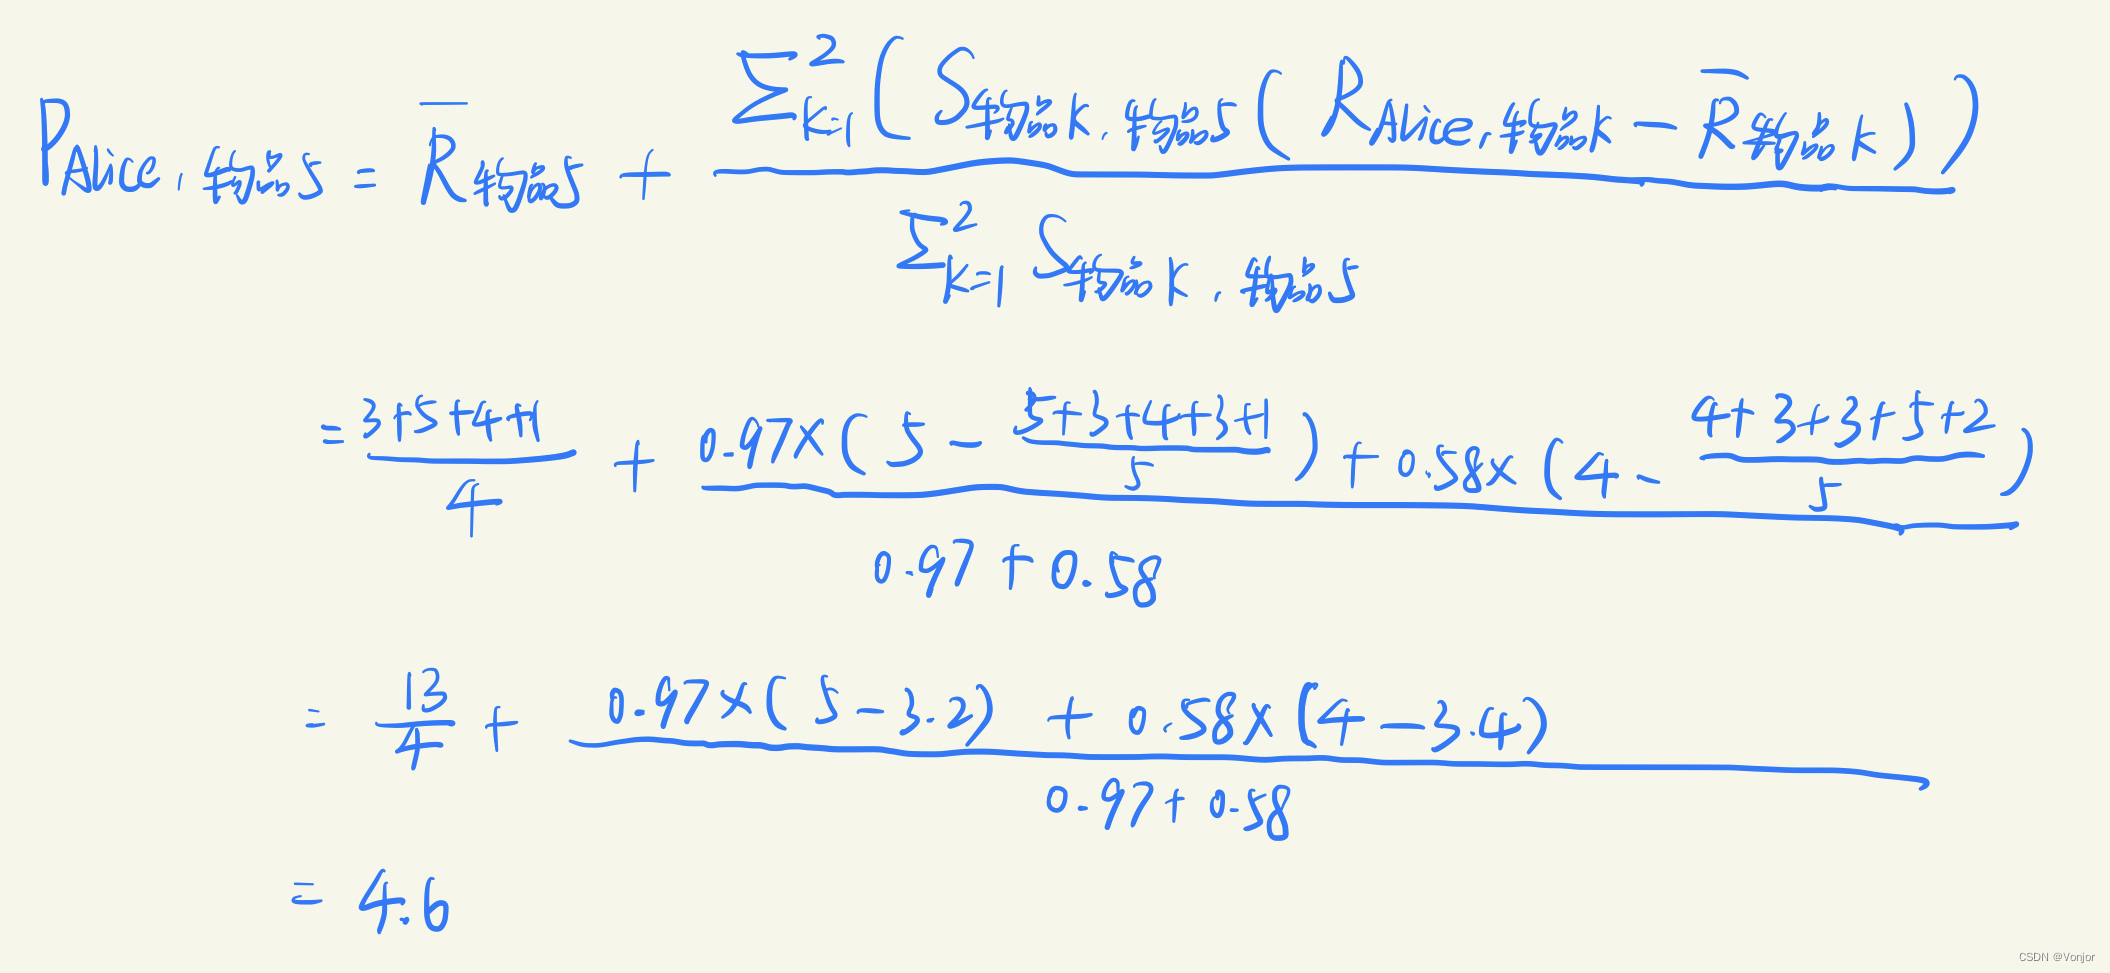 P_{Alice,物品5} = \overline{R}_{物品5} + \frac{\sum_{k=1}^{2}(S_{物品k,物品5}(R_{Alice,物品k} - \overline{R}_{物品k}))}{\sum_{k=1}^{2} S_{物品k,物品5}}
= \frac{3+5+4+1}{4} + \frac{0.97×(5-\frac{5+3+4+3+1}{5})+0.58×(4-\frac{4+3+3+5+2}{5})}{0.97+0.58}
= \frac{13}{4} + \frac{0.97×(5-3.2)+0.58×(4-3.4)}{0.97+0.58}
= 4.6
CSDN @Vonjor